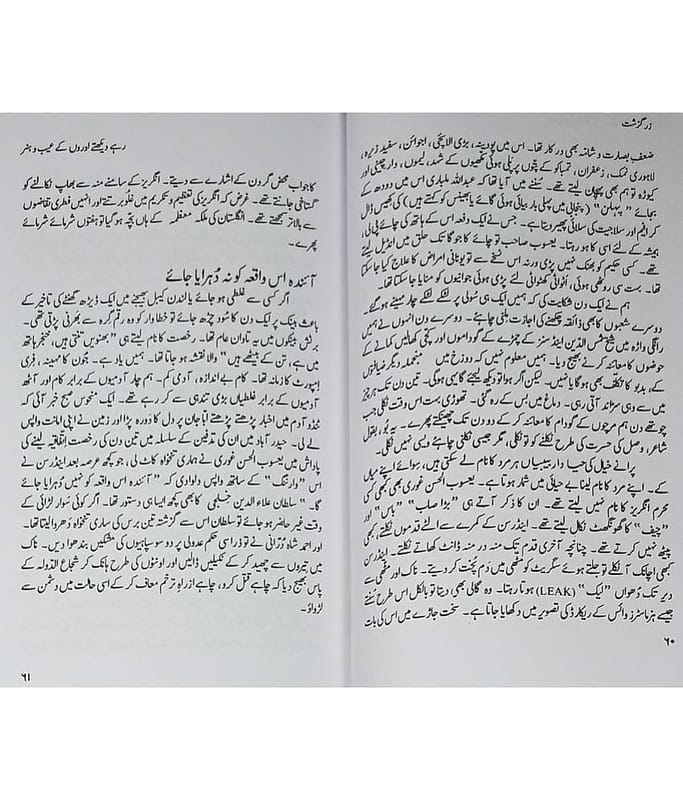 زرگزشت
ضعفِ بصارت و شانہ بھی درکار تھا۔ اس میں پودینہ، بڑی الائچی، اجوائن، سفید زیرہ،
لاہوری نمک، زعفران، تمباکو کے پتّوں پر پلی ہوئی مکھیوں کے شہد، لیموں، دارچینی اور
کیوڑہ تو ہم بھی پہچان لیتے تھے۔ سننے میں آیا تھا کہ عبداللہ ملباری اس میں دودھ کے
بجائے "پہلن" (پنجابی میں پہلی بار بیائی ہوئی گائے یا بھینس کو کہتے ہیں) کی کھیس ڈال
کر افیم اور سلاجیت کی سلائی پھیر دیتا ہے۔ جس نے ایک دفعہ اس کے ہاتھ کی چائے پی لی،
ہمیشہ کے لئے اسی کا ہو رہتا۔ یعسوب صاحب تو چائے کا جوگا تک حلق میں انڈیل لیتے
تھے۔ کسی حکیم کو بھنک نہیں پڑی ورنہ اس نسخے سے تو یونانی امراض کا علاج کیا جا سکتا
تھا۔ بہت سی روٹھی ہوئی، اَٹوانٹی کھٹوانٹی لئے پڑی ہوئی جوانیوں کو منایا جا سکتا تھا۔
ہم نے ایک دن شکایت کی کہ ہمیں ایک ہی سُولی پر لٹکے لٹکے چار مہینے ہو گئے۔
دوسرے شعبوں کا بھی ذائقہ چکھنے کی اجازت ملنی چاہئے۔ دوسرے دن انہوں نے ہمیں
رانگی واڑہ میں شیخ شمس الدین اینڈ سنز کے چمڑے کے گوداموں اور کچی کھالیں کمانے کے
حوضوں کا معائنہ کرنے بھیج دیا۔ ہمیں معلوم نہیں کہ دوزخ میں منجملہ دیگر ضیافتوں
کے، بدبو کا تکلّف بھی ہوگا یا نہیں۔ لیکن اگر ہوا تو دیکھ لیجئے گا ایسی ہوگی۔ تین دن تک ہر چیز
میں سے وہی سڑاند آتی رہی۔ دماغ میں بس کے رہ گئی۔ تھوڑی بہت اس وقت نکلی جب
چوتھے دن ہم مرچوں کے گودام کا معائنہ کر کے دو دن تک چھینکتے پھرے۔ یہ بُو، بقول
شاعر، وصل کی حسرت کی طرح نکلنے کو تو نکلی، مگر جیسی نکلنی چاہئے ویسی نہیں نکلی۔
پرانے خیال کی حیا دار بیبیاں ہر مرد کا نام لے سکتی ہیں، سوائے اپنے میاں
کے۔ اپنے مرد کا نام لینا بے حیائی میں شمار ہوتا ہے۔ یعسوب الحسن غوری بھی کبھی کسی
محرم انگریز کا نام نہیں لیتے تھے۔ ان کا ذکر آتے ہی "بڑا صاب" "باس" اور
"چیف" کا گھونگھٹ نکال لیتے تھے۔ اینڈرسن کے کمرے سے الٹے قدموں نکلتے، کبھی
پیٹھ نہیں کرتے تھے۔ چنانچہ آخری قدم تک منہ در منہ ڈانٹ کھاتے نکلتے۔ اینڈرسن
کبھی اچانک آ نکلے تو جلتے ہوئے سگریٹ کو مٹھی میں دم پخت کر دیتے۔ ناک اور مٹھی سے
دیر تک دُھواں "لیک" (LEAK) ہوتا رہتا۔ وہ گالی بھی دیتا تو بالکل اس طرح سُنتے
جیسے ہزماسٹرز وائس کے ریکارڈ کی تصویر میں دکھایا جاتا ہے۔ سخت جاڑے میں اس کی بات
۶۰
رہے دیکھتے اوروں کے عیب و ہنر
کا جواب محض گردن کے اشارے سے دیتے۔ انگریز کے سامنے منہ سے بھاپ نکالنے کو
گستاخی جانتے تھے۔ غرض کہ انگریز کی تعظیم و تکریم میں غلو برتتے اور انہیں فطری تقاضوں
سے بالاتر سمجھتے تھے۔ انگلستان کی ملکہ معظمہ کے ہاں بچہ ہو گیا تو ہفتوں شرمائے شرمائے
پھرے۔
آئندہ اس واقعہ کو نہ دُہرایا جائے
اگر کسی سے غلطی ہو جائے یا لندن کیبل بھیجنے میں ایک ڈیڑھ گھنٹے کی تاخیر کے
باعث بینک پر ایک دن کا سُود چڑھ جائے تو خطاوار کو وہ رقم گرہ سے بھرنی پڑتی تھی۔
برٹش بینکوں میں یہ تاوان عام تھا۔ رخصت کا نام لیتے ہی "بھنویں تنتی ہیں، خنجر ہاتھ
میں ہے، تن کے بیٹھے ہیں" والا نقشہ ہو جاتا تھا۔ ہمیں یاد ہے۔ جون کا مہینہ، فری
امپورٹ کا زمانہ تھا۔ کام بے اندازہ، آدمی کم۔ ہم چار آدمیوں کے برابر کام اور آٹھ
آدمیوں کے برابر غلطیاں بڑی تندہی سے کر رہے تھے۔ ایک منحوس صبح خبر آئی کہ
ٹنڈو آدم میں اخبار پڑھتے پڑھتے اباجان پر دل کا دورہ پڑا اور زمین نے اپنی امانت واپس
لے لی۔ حیدر آباد میں ان کی تدفین کے سلسلہ میں تین دن کی رخصتِ اتفاقیہ لینے کی
پاداش میں یعسوب الحسن غوری نے ہماری تنخواہ کاٹ لی، جو کچھ عرصہ بعد اینڈرسن نے
اس "وارننگ" کے ساتھ واپس دلوا دی کہ "آئندہ اس واقعہ کو نہیں دُہرایا جائے
گا۔" سلطان علاء الدین خلجی کا بھی کچھ ایسا ہی دستور تھا۔ اگر کوئی سوار لڑائی کے
وقت غیر حاضر ہو جائے تو سلطان اس سے گزشتہ تین برس کی ساری تنخواہ دھروالیتا تھا۔
اور احمد شاہ دُرّانی نے تو ذرا سی حکم عدولی پر دو سو سپاہیوں کی مشکیں بندھوا دیں۔ ناک
میں تیروں سے چھید کر کے نکیلیں ڈالیں اور اونٹوں کی طرح ہانک کر شجاع الدولہ کے
پاس بھیج دیا کہ چاہے قتل کرو، چاہے ازراہِ ترحّم معاف کر کے اسی حالت میں دشمن سے
لڑواؤ۔
۶۱